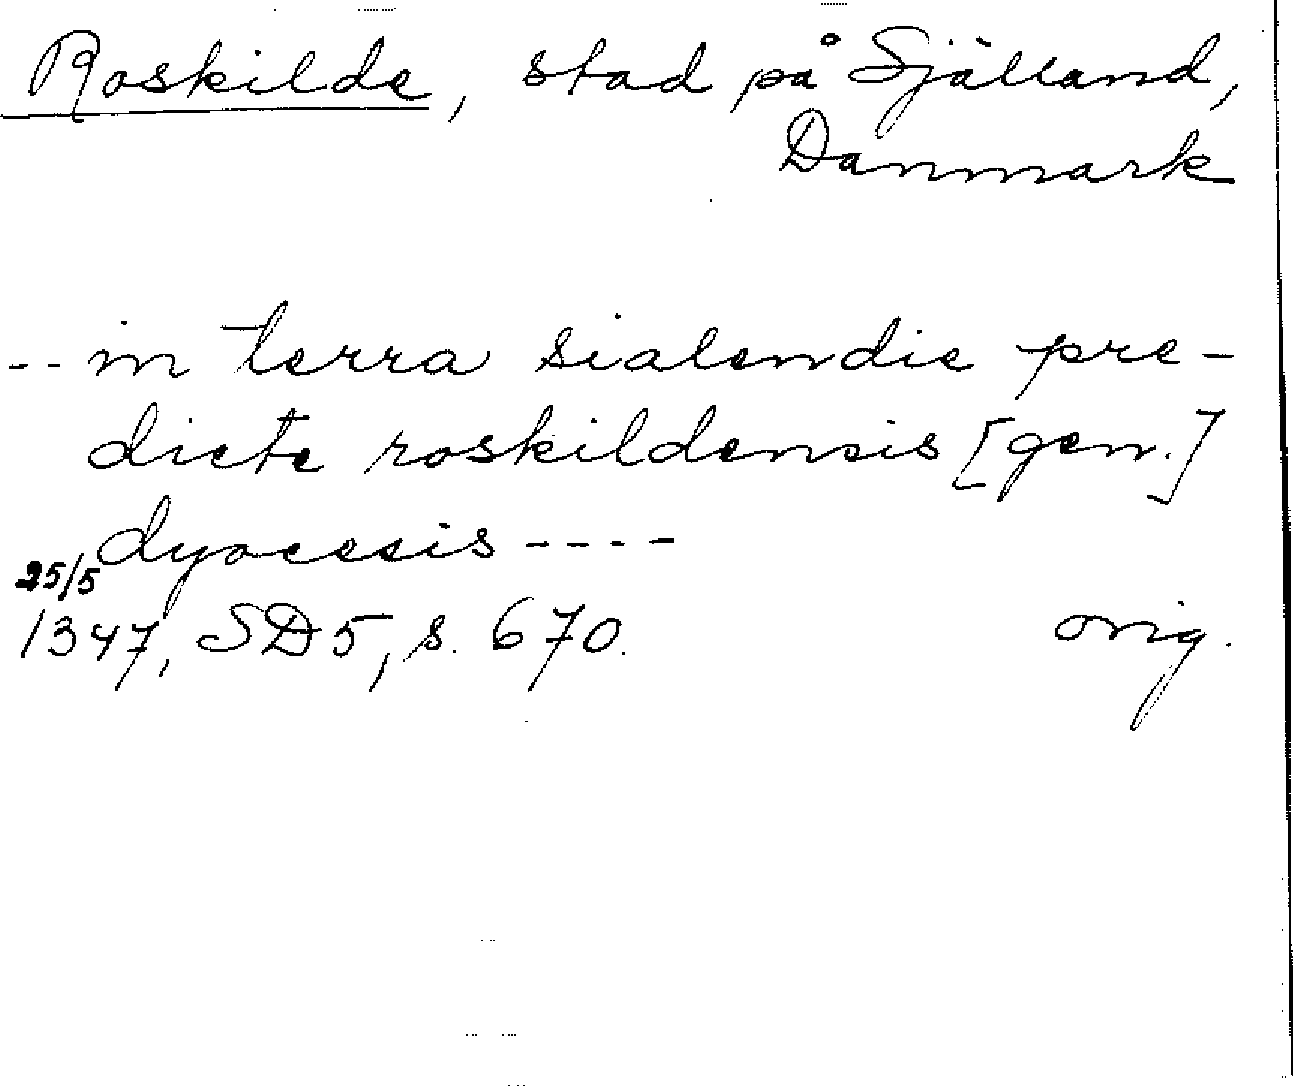 Roskilde, stad på Själland,
Danmark
-- in terra sialendie pre-
dicte roskildensis [gen.]
dyocesis ----
25/5
1347, SD5, s. 670. orig.